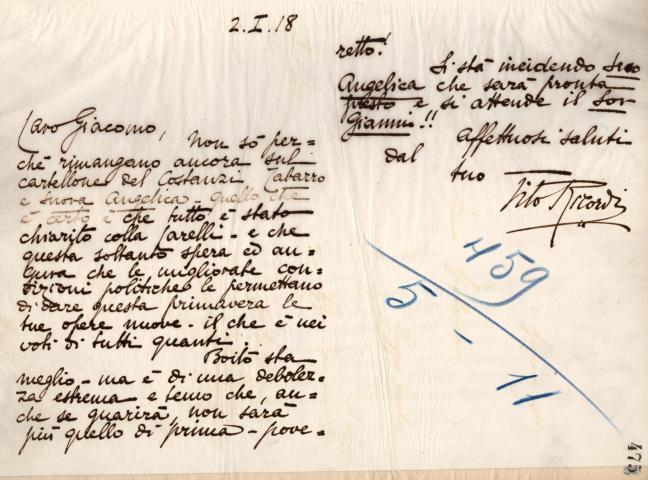 2.I.18
Caro Giacomo,
Non sò per=
chè rimangano ancora sul
cartellone del Costanzi Tabarro
e Suora Angelica - quello che
è certo è che tutto è stato
chiarito colla Carelli - e che
questa soltanto spera ed au=
gura che le migliorate con=
dizioni politiche le permettano
di dare questa primavera le
tue opere nuove - il che è nei
voti di tutti quanti.
Boito sta
meglio - ma è di una debolez=
za estrema e temo che, an=
che se guarirà, non sarà
più quello di prima - pove=
retto!
Si stà incidendo Suor
Angelica che sarà pronta
presto e si attende il Sor
Gianni!!
Affettuosi saluti
dal
tuo
Tito Ricordi
459
5 - 11
475